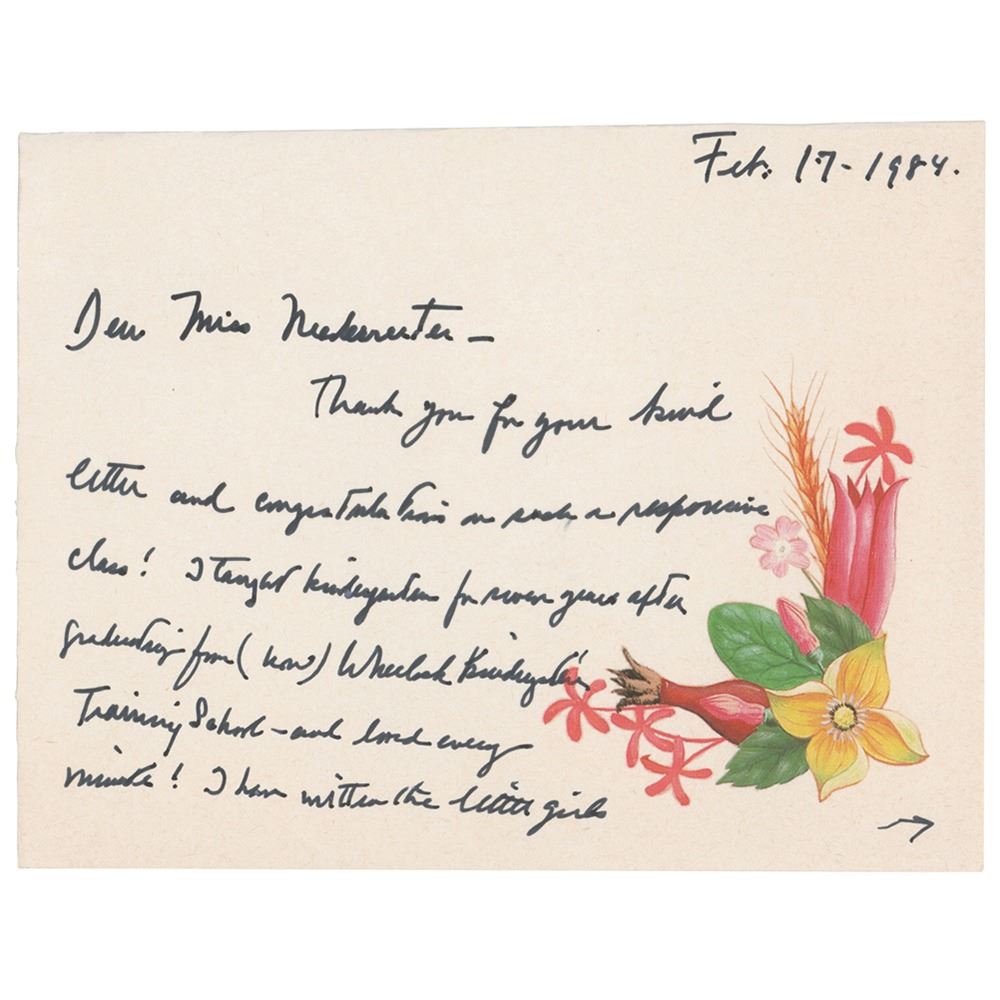 Feb. 17-1984.
Dear Miss
Thank you for your kind
letter and congratulations on such a responsive
class! I taught kindergarten for seven years after
graduating from (now) Wheelock Kindergarten
Training School - and loved every
minute! I have written the little girls
→